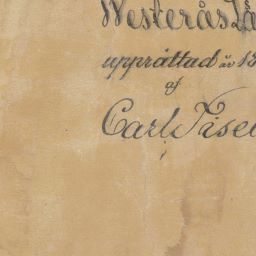 Westerås Lä
upprättad år 18
af
Carl Tisel